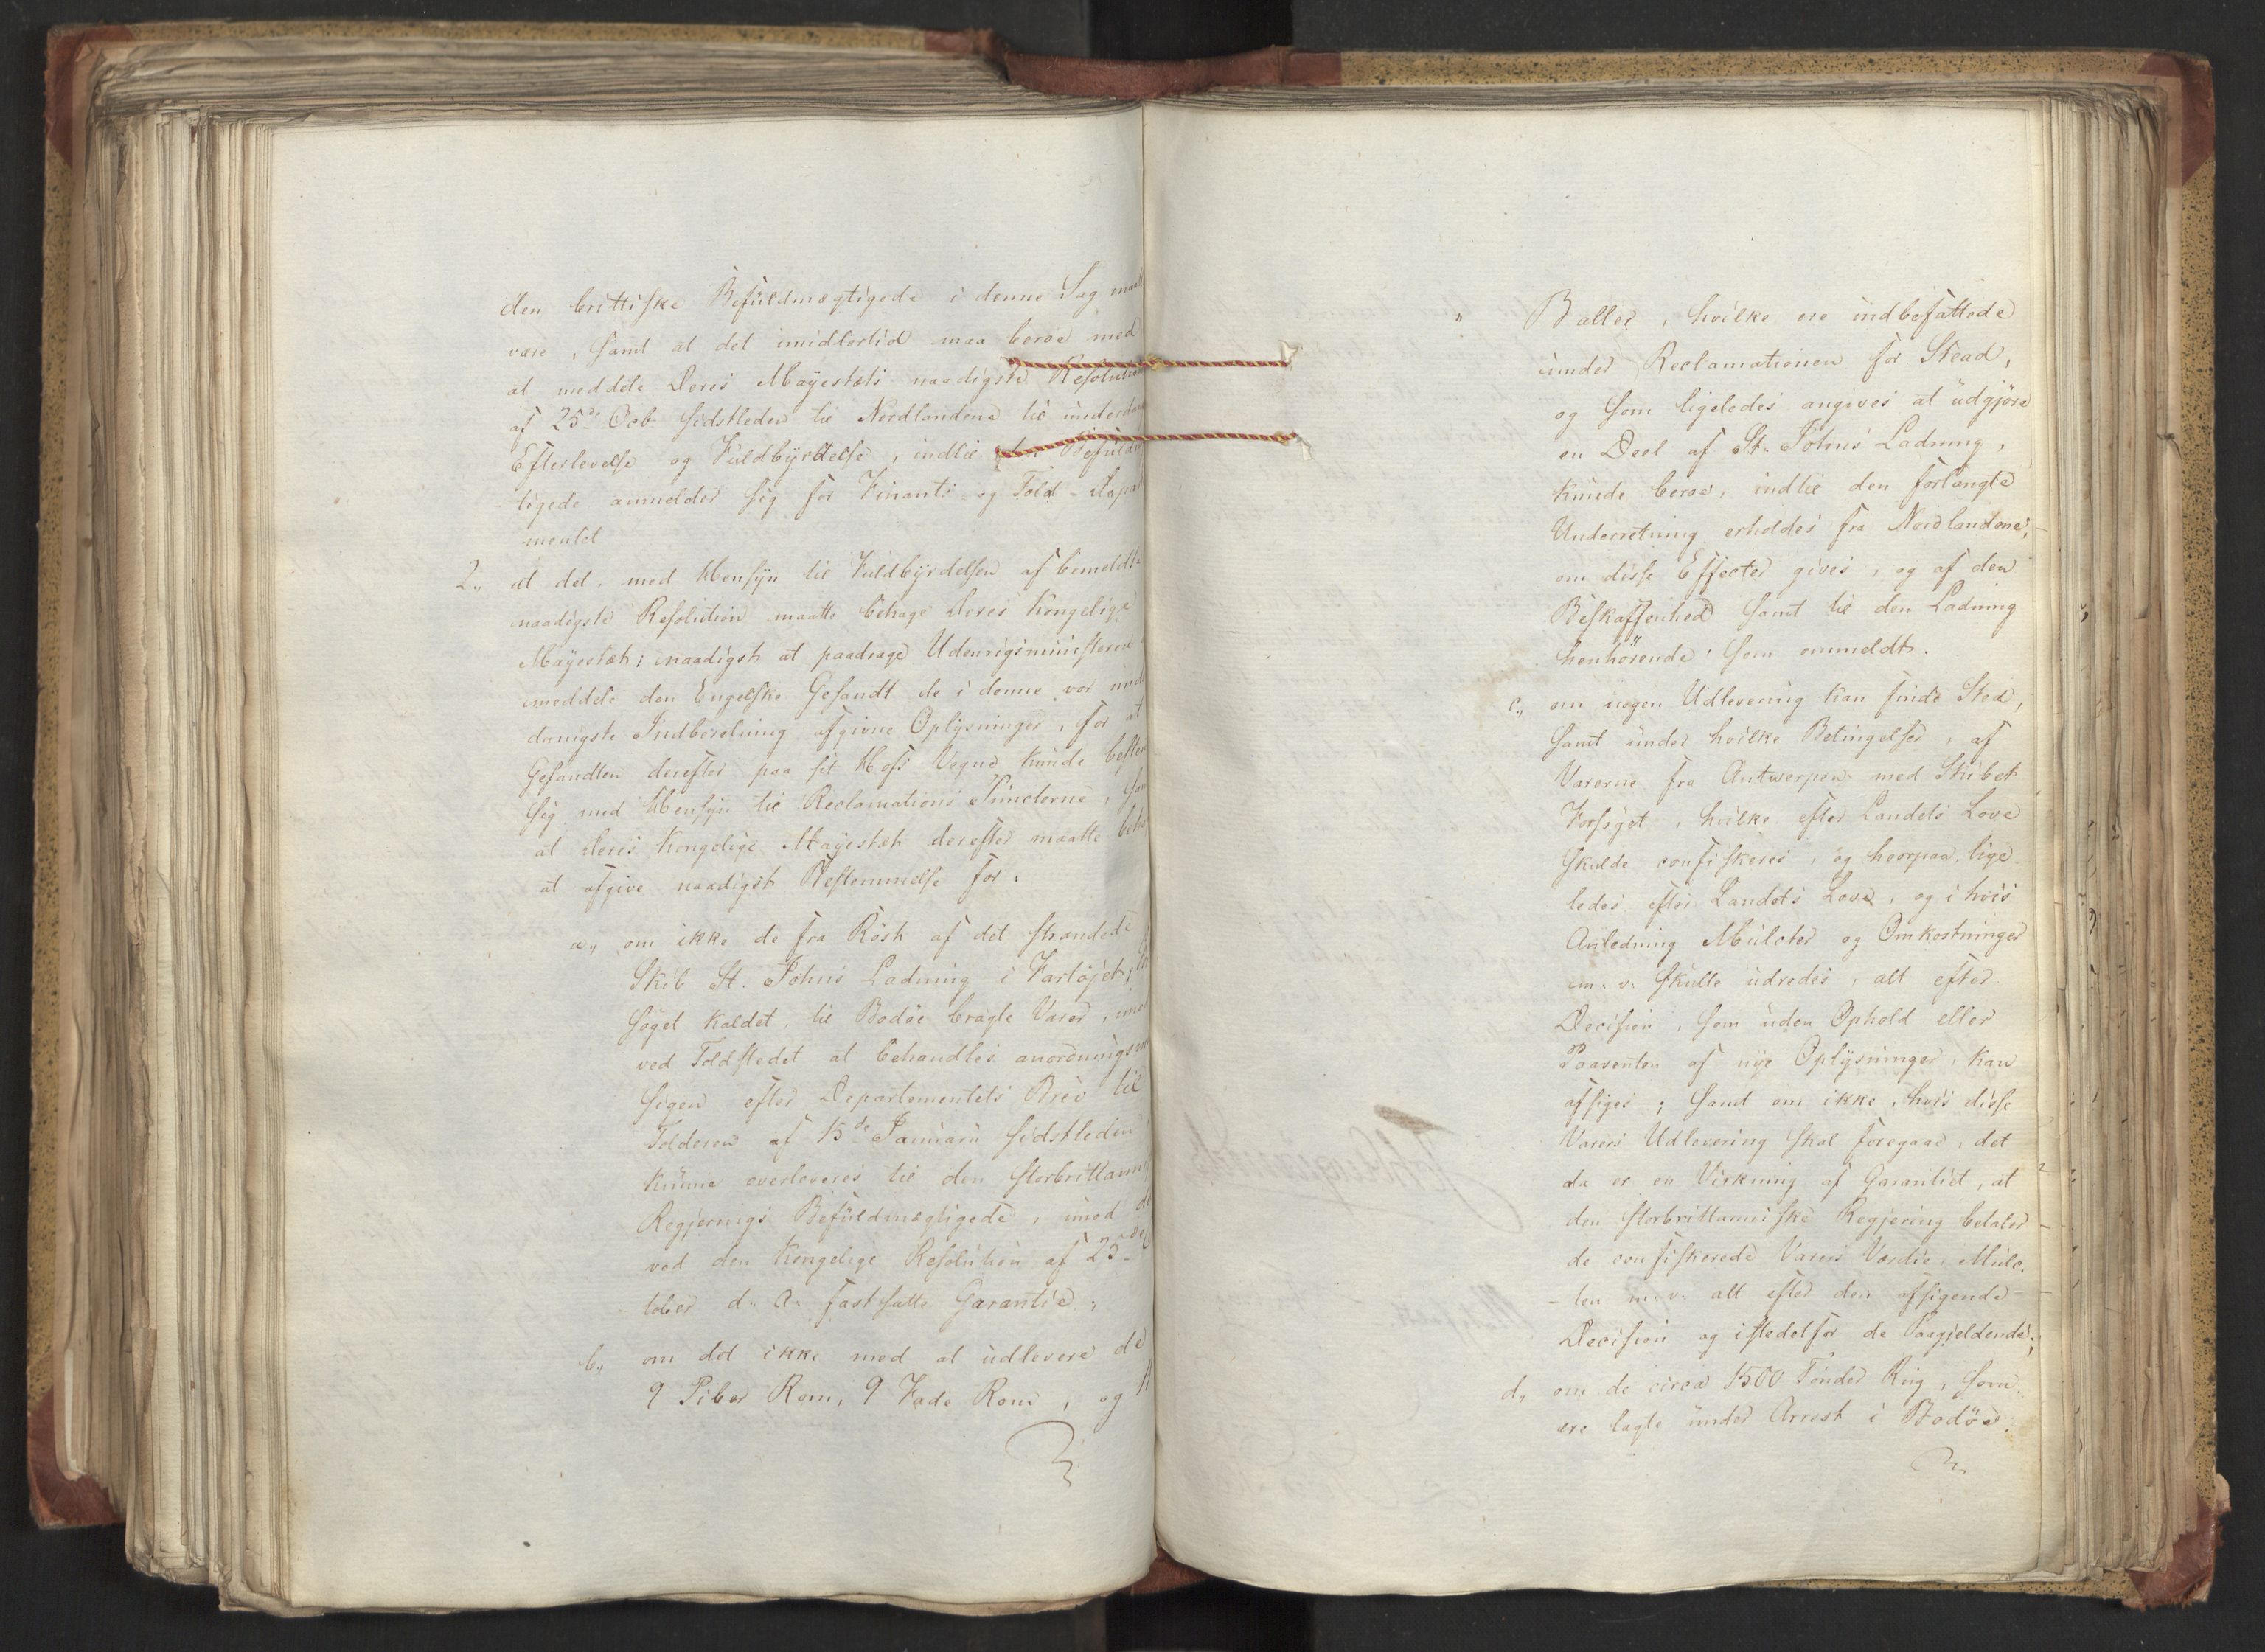 den brittiske Befuldmægtigede i denne Sag maatte
være, samt at det imidlertid maa beroe med
at meddele Deres Mayestæts naadigste Resolution
af 25de Octb. sidstleden til Nordlandene til underdan
Efterlevelse og Fuldbyrdelse, indtil den Befuldm
tigede anmelder sig for Finants- og Told-Depar
mentet
2., at det, med Hensyn til Fuldbyrdelsen af bemeldte
naadigste Resolution maatte behage Deres Kongelige
Mayestæt, naadigst at paadrage Udenrigsministeren
meddele den Engelske Gesandt de i denne vor und
danigste Indberetning afgivne Oplysninger, for at
Gesandten derefter paa sit Hofs Vegne kunde bestem
sig med Hensyn til Reclamations Puncterne, sam
at Deres Kongelige Mayestæt derefter maatte beha
at afgive naadigst Bestemmelse for:
a., om ikke de fra Röst af det strandede
Skib St. Johns Ladning i Fartøjet, For
søget kaldet, til Bodöe bragte Varer,
ved Toldstedet at behandles anordnings
sigen efter Departementets Brev til
Tolderen af 15de Januarii sidstleden
kunne overleveres til den storbrittanni
Regjerings Befuldmægtigede, imod de
ved den kongelige Resolution af 25de Oc
tober d. A. fastsatte Garantie;
b., om det ikke med at udlevere de
9 Piber Rom, 9 Fade Rom, og 11
" Baller, hvilke ere indbefattede
under Reclamationen for Stead,
og som ligeledes angives at udgjøre
en Deel af St. Johns Ladning,
kunde beroe, indtil den forlangte
Underretning erholdes fra Nordlandene,
om disse Effecter gives, og af den
Beskaffenhed samt til den Ladning
henhörende som anmeldt.
c., om nogen Udlevering kan finde Sted,
samt under hvilke Betingelser, af
Varerne fra Antwerpen med Skibet
Forsøget, hvilke efter Landets Love
skulde confiskeres, og hvorpaa, lige
ledes efter Landets Love, og i hvis
Anledning Mulcter og Omkostninger
m. v. skulle udredes, alt efter
Decision, som uden Ophold eller
Paaventen af nye Oplysninger, kan
afsiges; samt om ikke, hvis disse
Varers Udlevering skal foregaae, det
da er en Virkning af Garantiet, at
den storbrittanniske Regjering betaler
de confiskerede Varers Værdie, Mulc-
ten m. v. alt efter den afsigende
Decision og istedetfor de Paagjeldende;
d., om de circa 1500 Tönder Rug, som
ere lagte under Arrest i Bodöe,